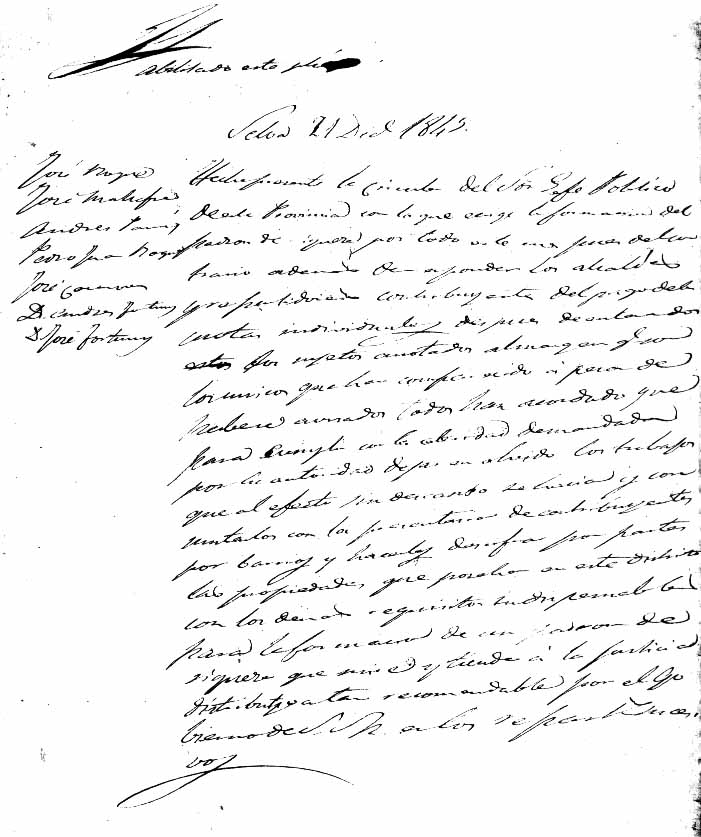 Habilitado este plie
Selva 21 Dic.e 1845.
José Roque
José
Andres
Pedro Juan Roque
José
D. Andres Fortuny
D. José Fortuny
Hecha presente la circular del Sor Gefe Politico
de esta Provincia con la que exige la formacion del
padron de riqueza por todo este mes pues del con
trario ademas de responder los alcaldes
y repartidores contribuyentes del pago de la
cuotas individuales y despues de enterados
estos los sujetos anotados al margen q.e son
los unicos que han comparecido a pesar de
haberse avisados todos han acordado que
para cumplir con la celeridad demandada
por la autoridad dejar en olvido los trabajos
que al efecto sin descanso se hacian y con
untarlos con la presentaria de contribuyentes
por barrios y hacerles descifrar por partes
las propiedades que posehen en este distrito
con los demas requisitos indispensables
para la formacion de un padron de
riqueza que mire y tienda á la justicia
distributiva tan recomendable por el Go
bierno de S. M. en los repartos sucesi
vos